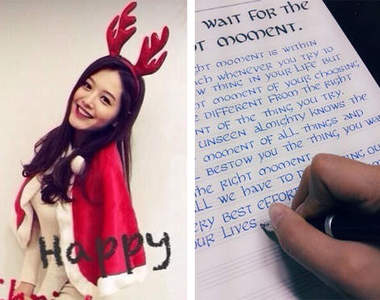 Happy
Chris
WAIT FOR THE
T MOMENT.
T MOMENT IS WITHIN
CH WHENEVER YOU TRY TO
W THING IN YOUR LIFE BUT
T MOMENT OF YOUR CHOOSING
E DIFFERENT FROM THE RIGHT
NT OF THE THING YOU TRY.
UNSEEN ALMIGHTY KNOWS THE
MOMENT OF ALL THINGS AND
BESTOW YOU THE THING YOU WA
THE RIGHT MOMENT
ALL WE HAVE TO DO
ERY BEST EFFOR
OUR LIVES